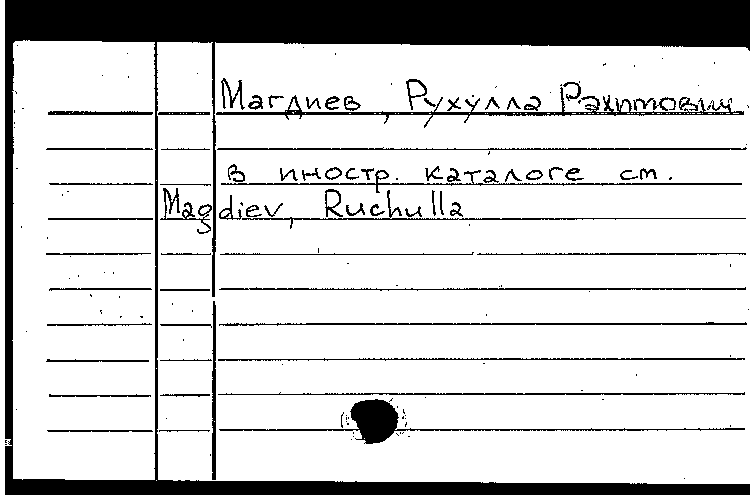 Магдиев, Рухулла Рахимович
в иностр. каталоге см.
Magdiev, Ruchulla